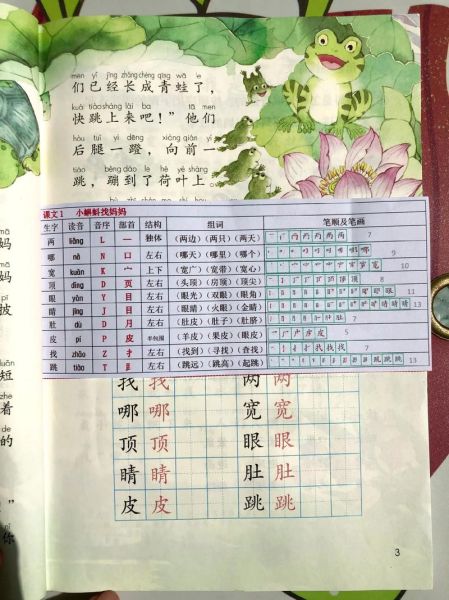 men yǐ jīng zhǎng chéng qīng wā le
们已经长成青蛙了，
kuài tiào shàng lái ba tā men
快跳上来吧！”他们
hòu tuǐ yì dēng xiàng qián yí
后腿一蹬，向前一
tiào bèng dào le hé yè shàng
跳，蹦到了荷叶上。
课文1 小蝌蚪找妈妈
生字 读音 音序 部首 结构 组词 笔顺及笔画
两 liǎng L 一 独体 （两边）（两只）（两天） 7
哪 nǎ N 口 左右 （哪天）（哪里）（哪个） 9
宽 kuān K 宀 上下 （宽广）（宽带）（宽心） 10
顶 dǐng D 页 左右 （头顶）（房顶）（顶尖）
眼 yǎn Y 目 左右 （眼光）（双眼）（眼角）
睛 jīng J 目 左右 （眼睛）（火眼）（金睛） 13
肚 dù D 月 左右 （肚皮）（肚子）（肚脐）
皮 pí P 皮 半包围 （羊皮）（果皮）（眼皮） 5
找 zhǎo Z 扌 左右 （找到）（寻找）（查找） 7
跳 tiào T 𧾷 左右 （跳远）（跳高）（起跳） 13
找 找 两 两
哪 哪 宽 宽
顶 顶 眼 眼
睛 睛 肚 肚
皮 皮 跳 跳
3
mā
妈
pī
披
duǎn
短
zhe
着
de
的
”
nǐ
你